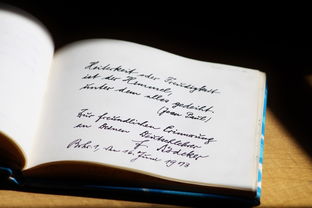 Heiterkeit oder Freudigkeit
ist der Himmel,
unter dem alles gedeiht.
(Jean Paul)
Zur freundlichen Erinnerung
an Deinen
F. Rädecker
1, den 16. Juni 1978